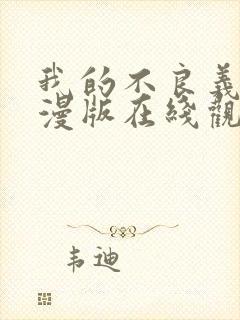 我的不良義
漫版在綫觀
韦迪